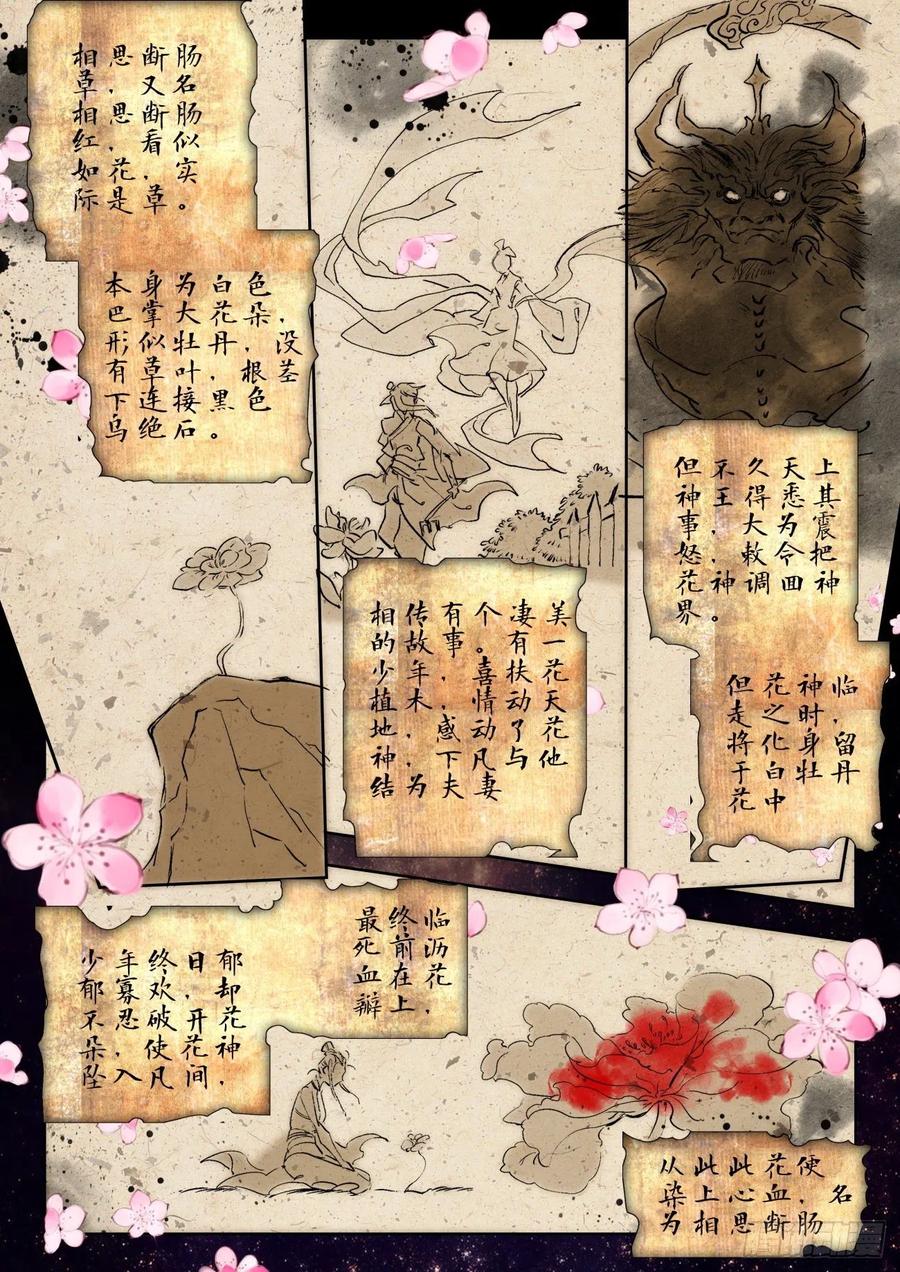 相思断肠
草，又名
相思断肠
红，看似
如花，实
际是草。
本身为白色
巴掌大花朵，
形似牡丹，没
有草叶，根茎
下连接黑色
乌绝石。
相传有个凄美
的故事。有一
少年，喜扶花
植木，情动天
地，感动了花
神下凡与他
结为夫妻
但不久天上
神王得悉其
事，大为震
怒，敕令把
花神调回神
界。
但花神临
走之时，
将化身留
于白牡丹
花中
少年终日郁
郁寡欢，却
不忍破开花
朵，使花神
坠入凡间，
最终临
死前沥
血在花
瓣上，
从此此花便
染上心血，名
为相思断肠